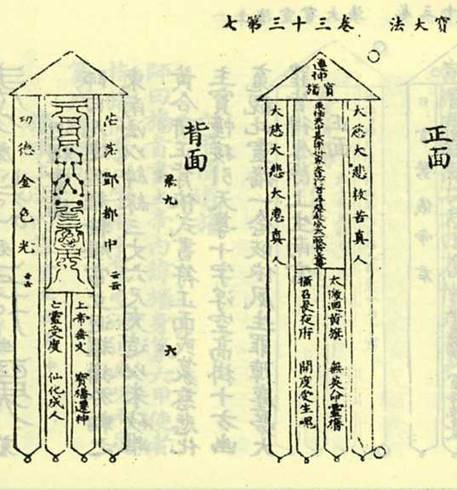 寶大法 卷三十三第七
正面
遷神寶旛
大慈大悲救苦真人
太微迴黃旗 無英命靈旛
攝召長夜府 開度受生魂
大慈大悲大惠真人
背面
六
茫茫酆都中 云云
上帝垂文 寶旛遷神
亡靈受度 仙化成人
功德金色光 云云